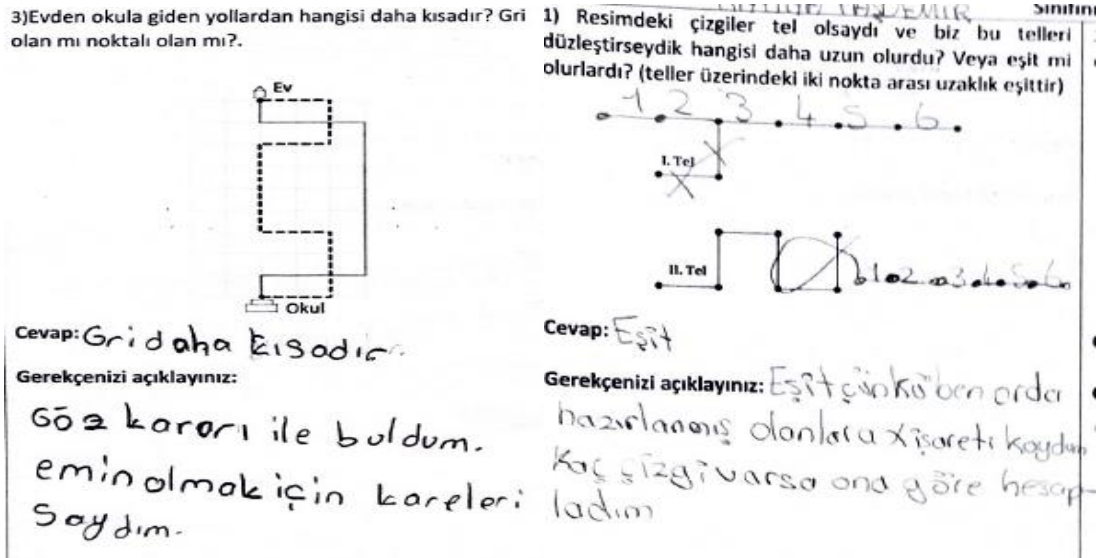 3)Evden okula giden yollardan hangisi daha kısadır? Gri
olan mı noktalı olan mı?.
Ev
Okul
Cevap: Gri daha kısadır.
Gerekçenizi açıklayınız:
Göz kararı ile buldum.
emin olmak için kareleri
Saydım.
Sınıfın
1) Resimdeki çizgiler tel olsaydı ve biz bu telleri
düzleştirseydik hangisi daha uzun olurdu? Veya eşit mi
olurlardı? (teller üzerindeki iki nokta arası uzaklık eşittir)
1 2 3 4 5 6
I. Tel
II. Tel
1 2 3 4 5 6
Cevap: Eşit
Gerekçenizi açıklayınız: Eşit çünkü ben orda
hazırlanmış olanlara X işareti koydum
Kaç çizgi varsa ona göre hesap-
ladım